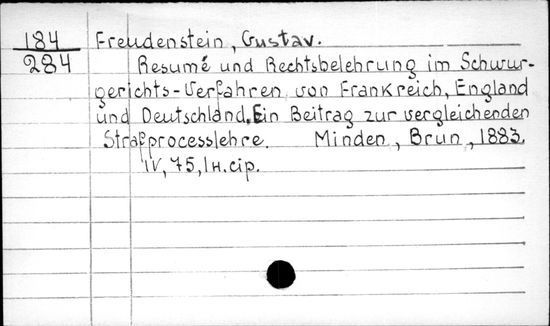 184 Freudenstein, Gustav.
284 Resumé und Rechtsbelehrung im Schwur-
gerichts-Verfahren von Frankreich, England
und Deutschland. Ein Beitrag zur vergleichenden
Strafprocesslehre. Minden, Brun, 1883.
IV, 75, 1 н. стр.